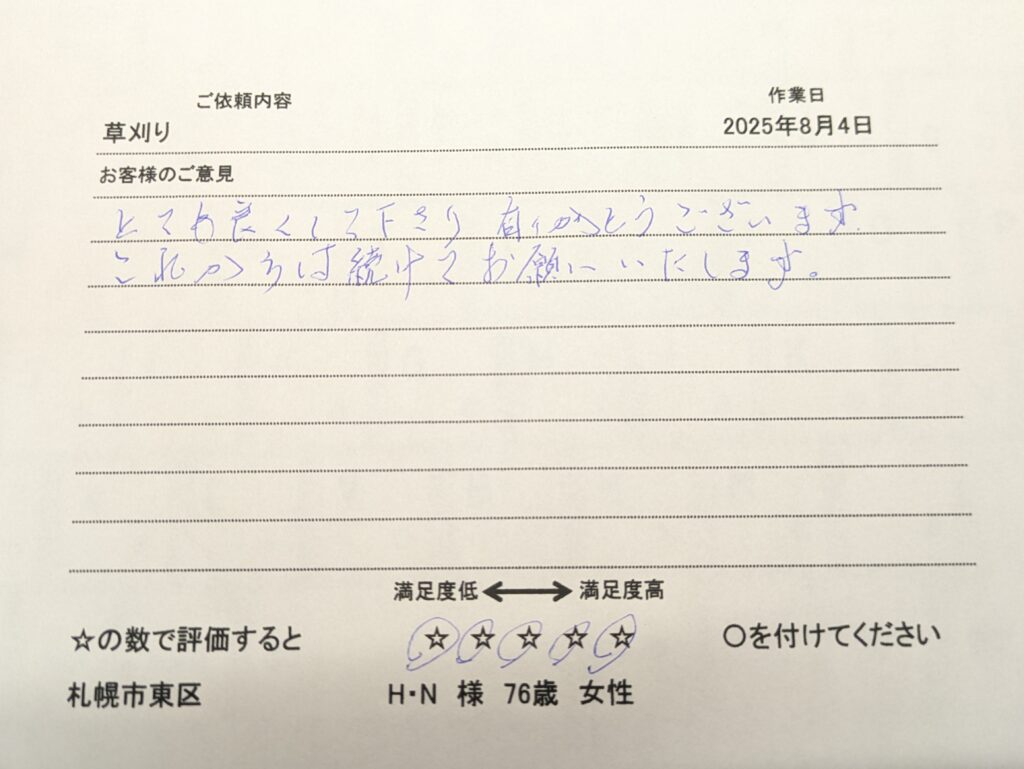 ご依頼内容
作業日
草刈り
2025年8月4日
お客様のご意見
とても良くして下さり 有りがとうございます。
これからは続けてお願いいたします。
満足度低 ⟷ 満足度高
☆の数で評価すると ☆ ☆ ☆ ☆ ☆ 〇を付けてください
札幌市東区 H・N 様 76歳 女性